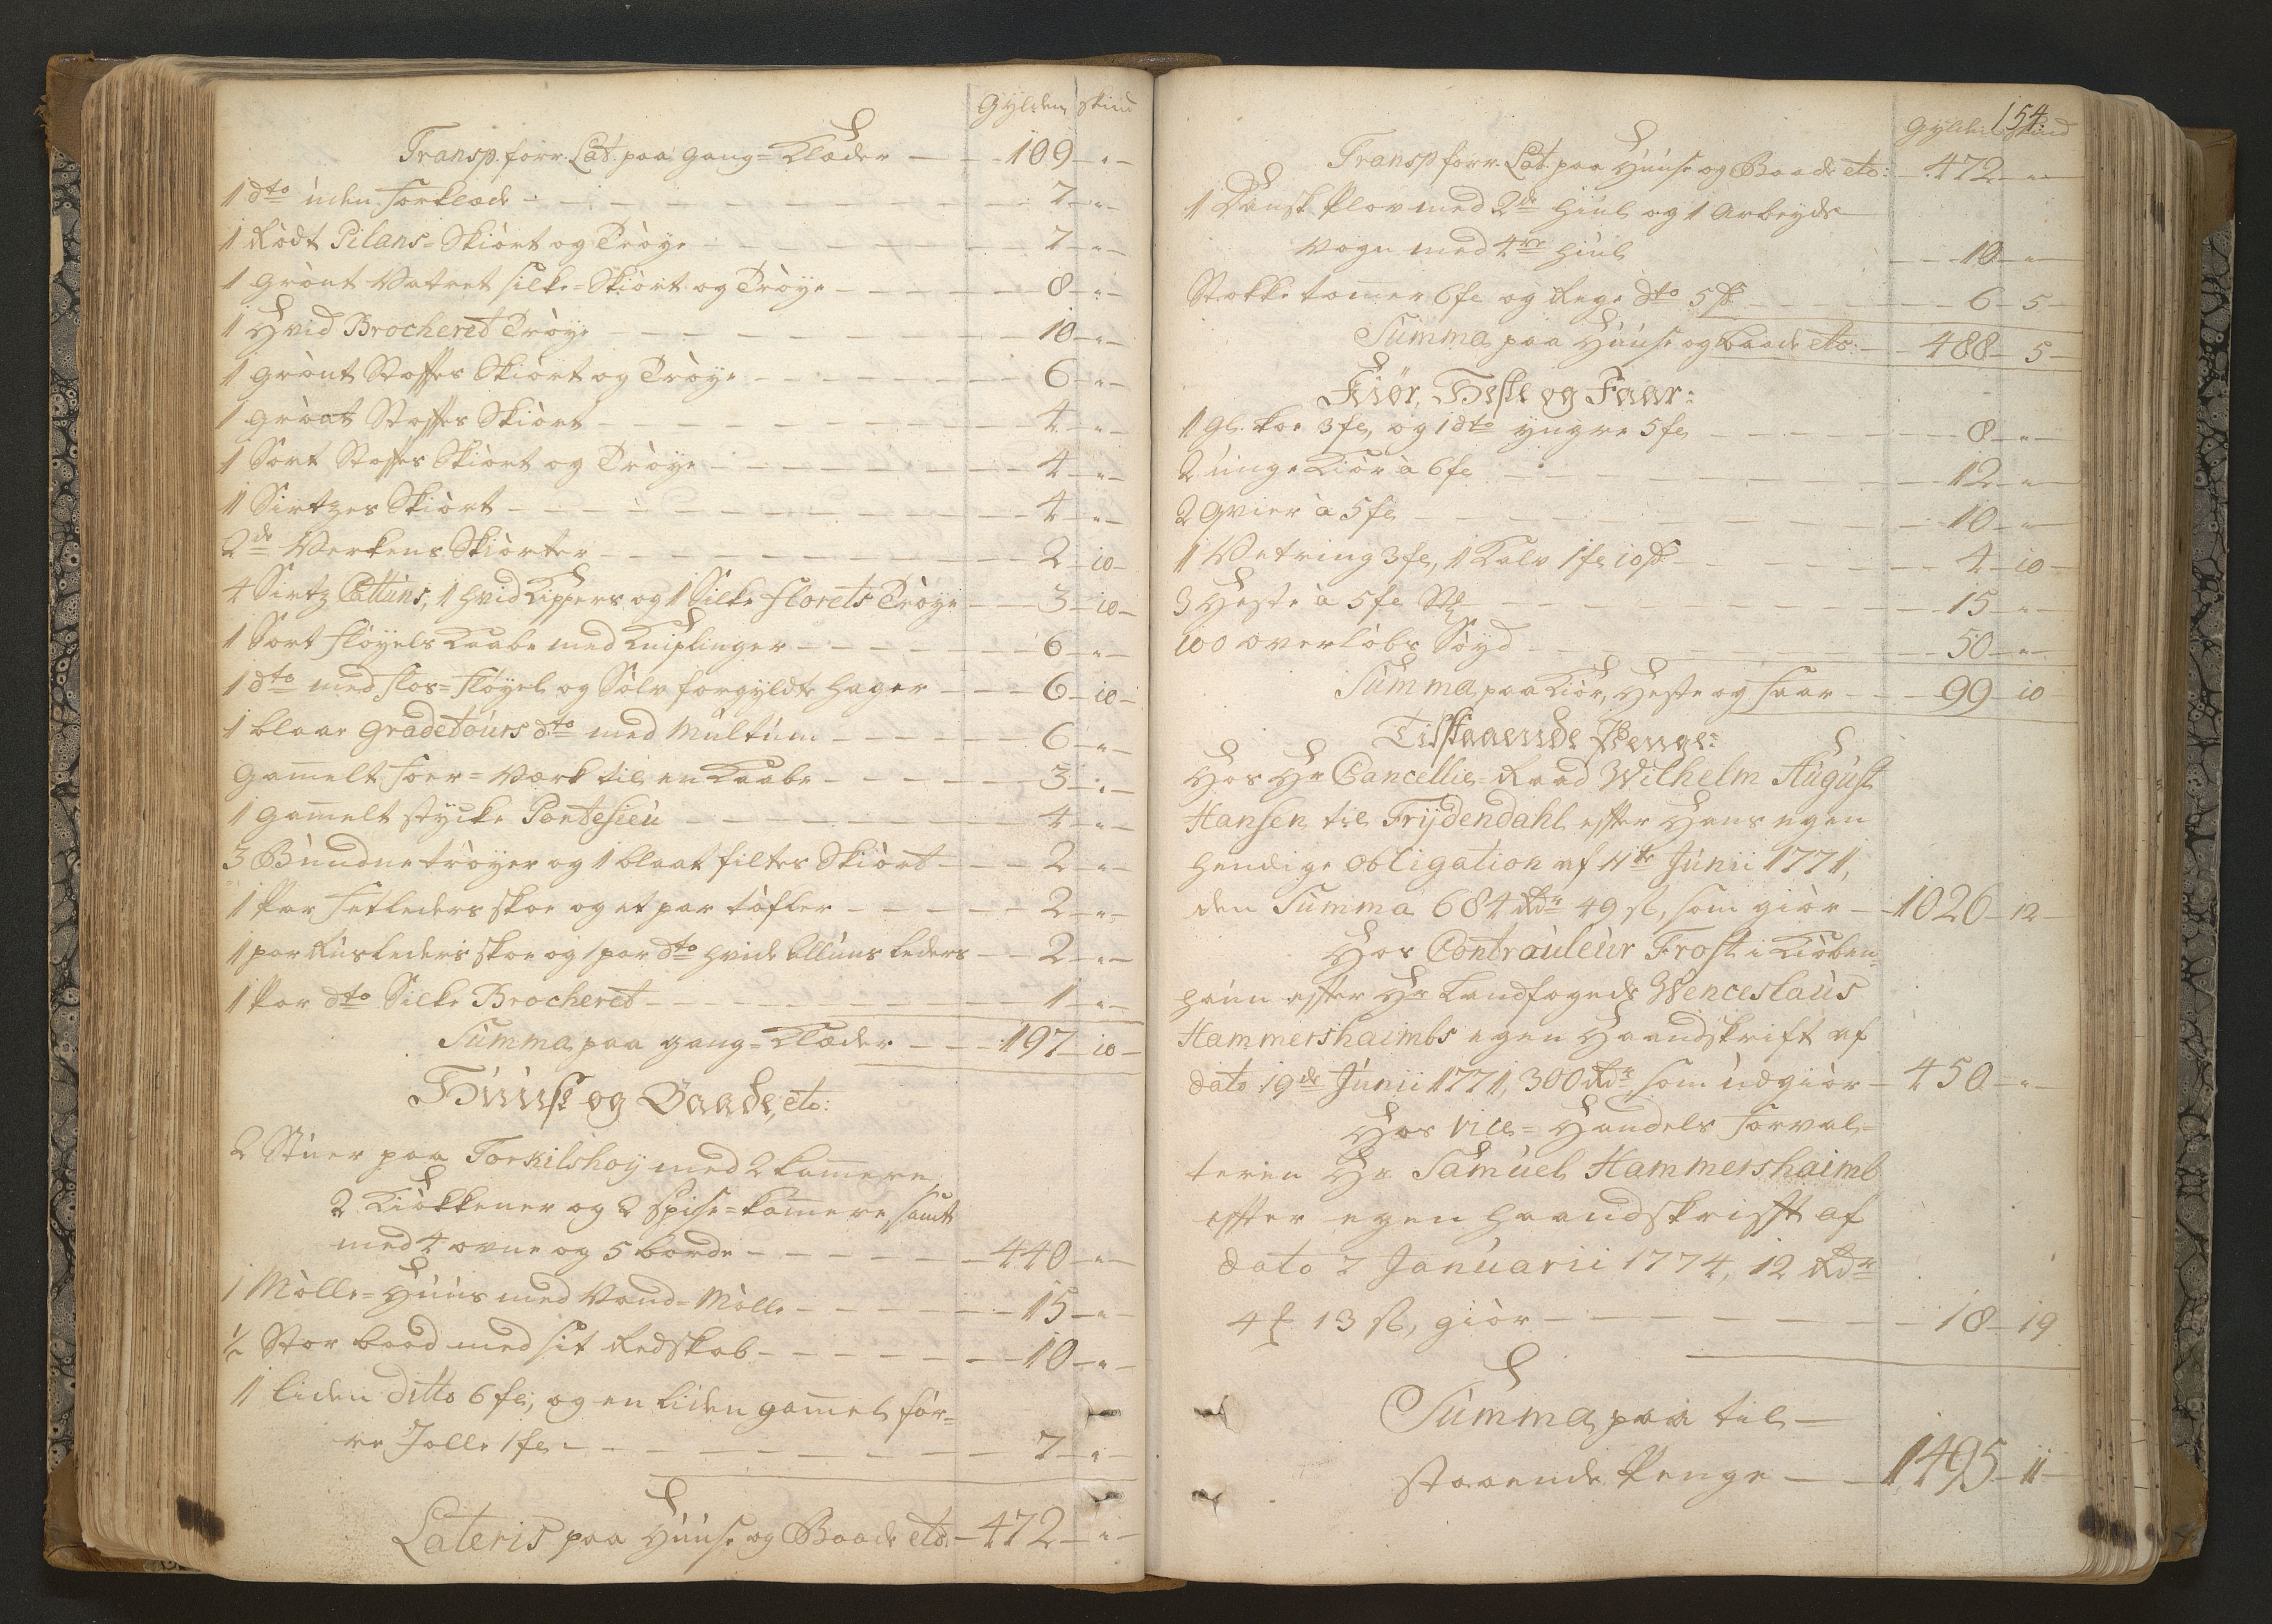 Gylden Skind
Transp. forr. Lat. paa Gang=Klæder — — 109 — „ —
1 dto uden Forklæde — 7 — „ —
1 Rødt Pilans=Skiørt og Trøye — 7 — „ —
1 grønt Vatret silke=Skiørt og Trøye — 8 — „ —
1 Hvid Brocheret Trøye — 10 — „ —
1 grønt Stoffes Skiørt og Trøye — 6 — „ —
1 grønt Stoffes Skiørt — 4 — „ —
1 Sort Stoffes Skiørt og Trøye — 4 — „ —
1 Sirtzes Skiørt — 4 — „ —
2de Verkens Skiørter — 2 — 10 —
4 Sirtz Cattuns, 1 hvid Kippers og 1 Silke florets Trøye — 3 — 10 —
1 Sort fløyels Kaabe med Kniplinger — 6 — „ —
1 dto med flos=fløyel og Sølv forgyldte hager — 6 — 10 —
1 blaae Gradetours dto med Multum — 6 — „ —
Gam̅elt foer=Værk til en Kaabe — 3 — „ —
1 Gam̅elt stycke Pontesieu — 4 — „ —
3 Bundne trøyer og 1 blaat filtes Skiørt — 2 — „ —
1 Par Fetleders skoe og et par tøfler — 2 — „ —
1 par Rusleders skoe og 1 par dto hvide Alluns leders — 2 — „ —
1 Par dto Silke Brocheret — 1 — „ —
Summa paa Gang=Klæder — 197 — 10 —
Huuse og Baade, etc:
2 Stuer paa Torkilshøÿ med 2 kam̅ere,
2 Kiøkkener og 2 Spise=kam̅ere samt
med 4 ovne og 5 borde — 440 — „ —
1 Mølle=Huus med Vand=Mølle — 15 — „ —
½ Stor baad med sit Redskab — 10 — „ —
1 liden ditto 6 fl, og en liden gam̅el før=
re Jolle 1 fl — 7 — „ —
Lateris paa Huuse og Baade etc. — 472 — „ —
154.
Gylden Skind
Transp forr. Lat. paa Huuse og Baade etc: — 472 — „ —
1 Dansk Plov med 2de Hiul og 1 Arbeyds
Vogn med 4re Hiul — 10 — „ —
Stokke tom̅er 6 fl og Rege dto 5 sk — 6 — 5 —
Summa paa Huuse og baade etc: — 488 — 5 —
Kiør, Heste og Faar:
1 Gl. koe 3 fl, og 1 dto yngre 5 fl — 8 — „ —
2 unge Kiør à 6 fl — 12 — „ —
2 Qvier à 5 fl — 10 — „ —
1 Vetring 3 fl, 1 Kalv 1 fl 10 sk — 4 — 10 —
3 Heste à 5 fl St — 15 — „ —
100 overløbs Søyd — 50 — „ —
Summa paa Kiør, Heste og faar — 99 — 10
Tilstaaende Penge:
Hos Hr Cancellie=Raad Wilhelm August
Hansen til Frÿdendahl efter Hans egen
hendige Obligation af 11te Junii 1771,
den Summa 684 Rdr 49 ß, som giør — 1026 — 12 —
Hos Contrauleur Frost i Kiøben=
haun efter Hr Landfogeds Wenceslaus
Hammershaimbs egen Haandskrift af
dato 19de Junii 1771, 300 Rdr som udgiør — 450 — „ —
Hos Vice=Handels Forval=
teren Hr Samuel Hammershaimb
effter egen haandskrifft af
dato 7 Januarii 1774, 12 Rdr
4 ℳ 13 ß, giør — 18 — 19
Summa paa til —
staaende Penge — 1495 — 11 —